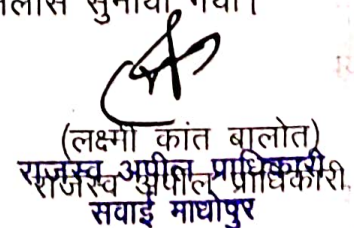 सुनाया गया।
(लक्ष्मी कांत बालोत)
राजस्व अपील प्राधिकारी
राजस्व अपील प्राधिकारी,
सवाई माधोपुर